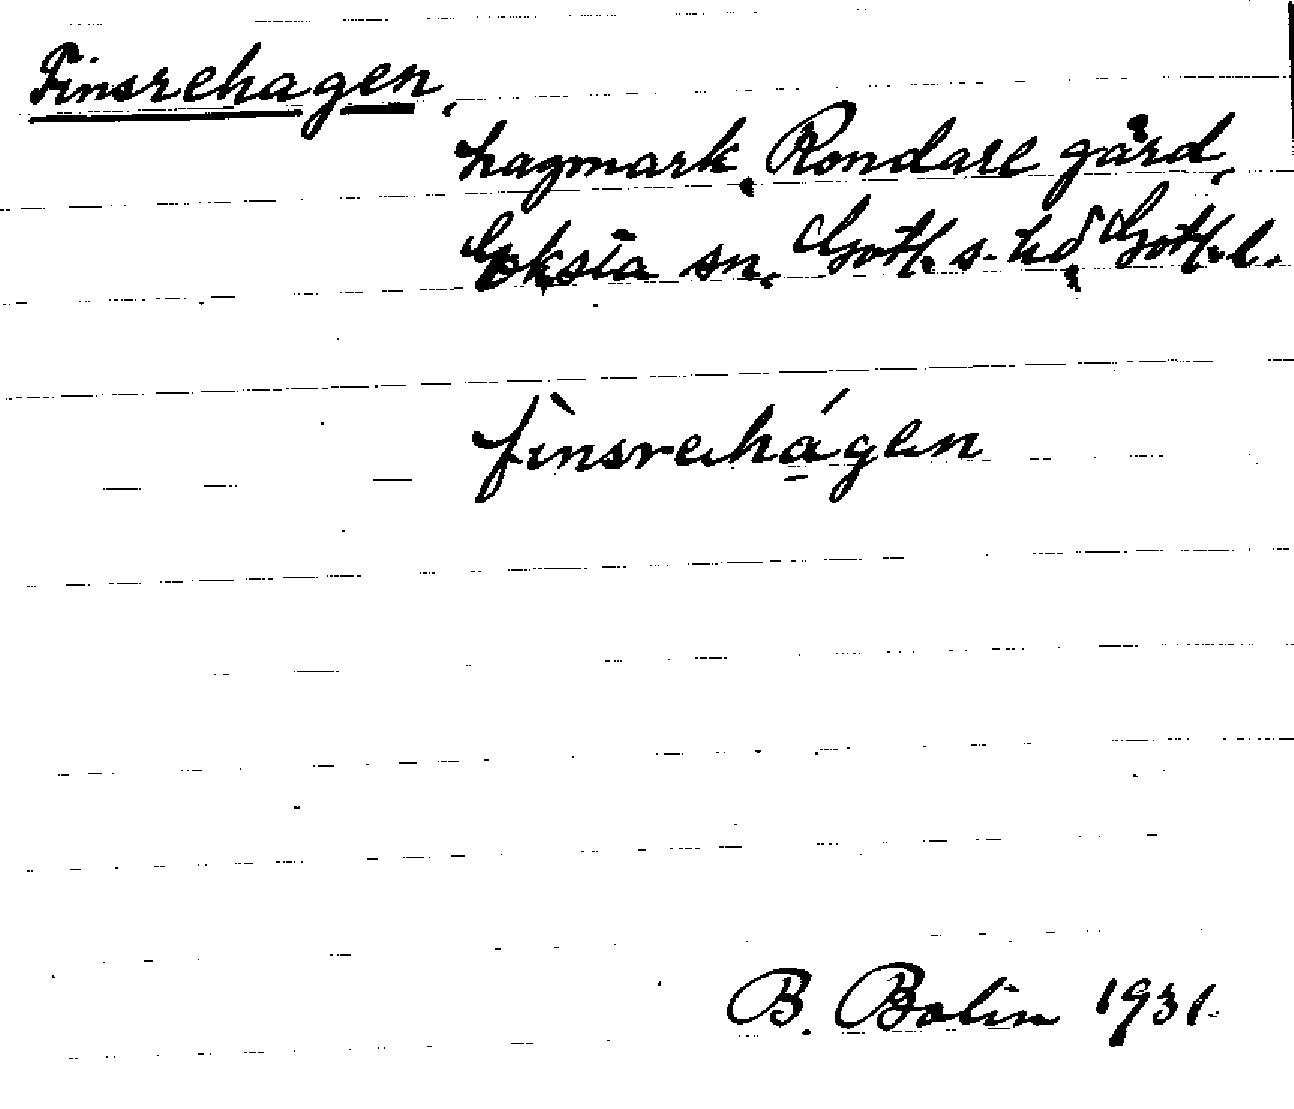 Finsrehagen,
hagmark, Rondare gård,
Eksta sn, Gotl. s. hd, Gotl. l.
fìnsrehágen
B. Bolin 1931.